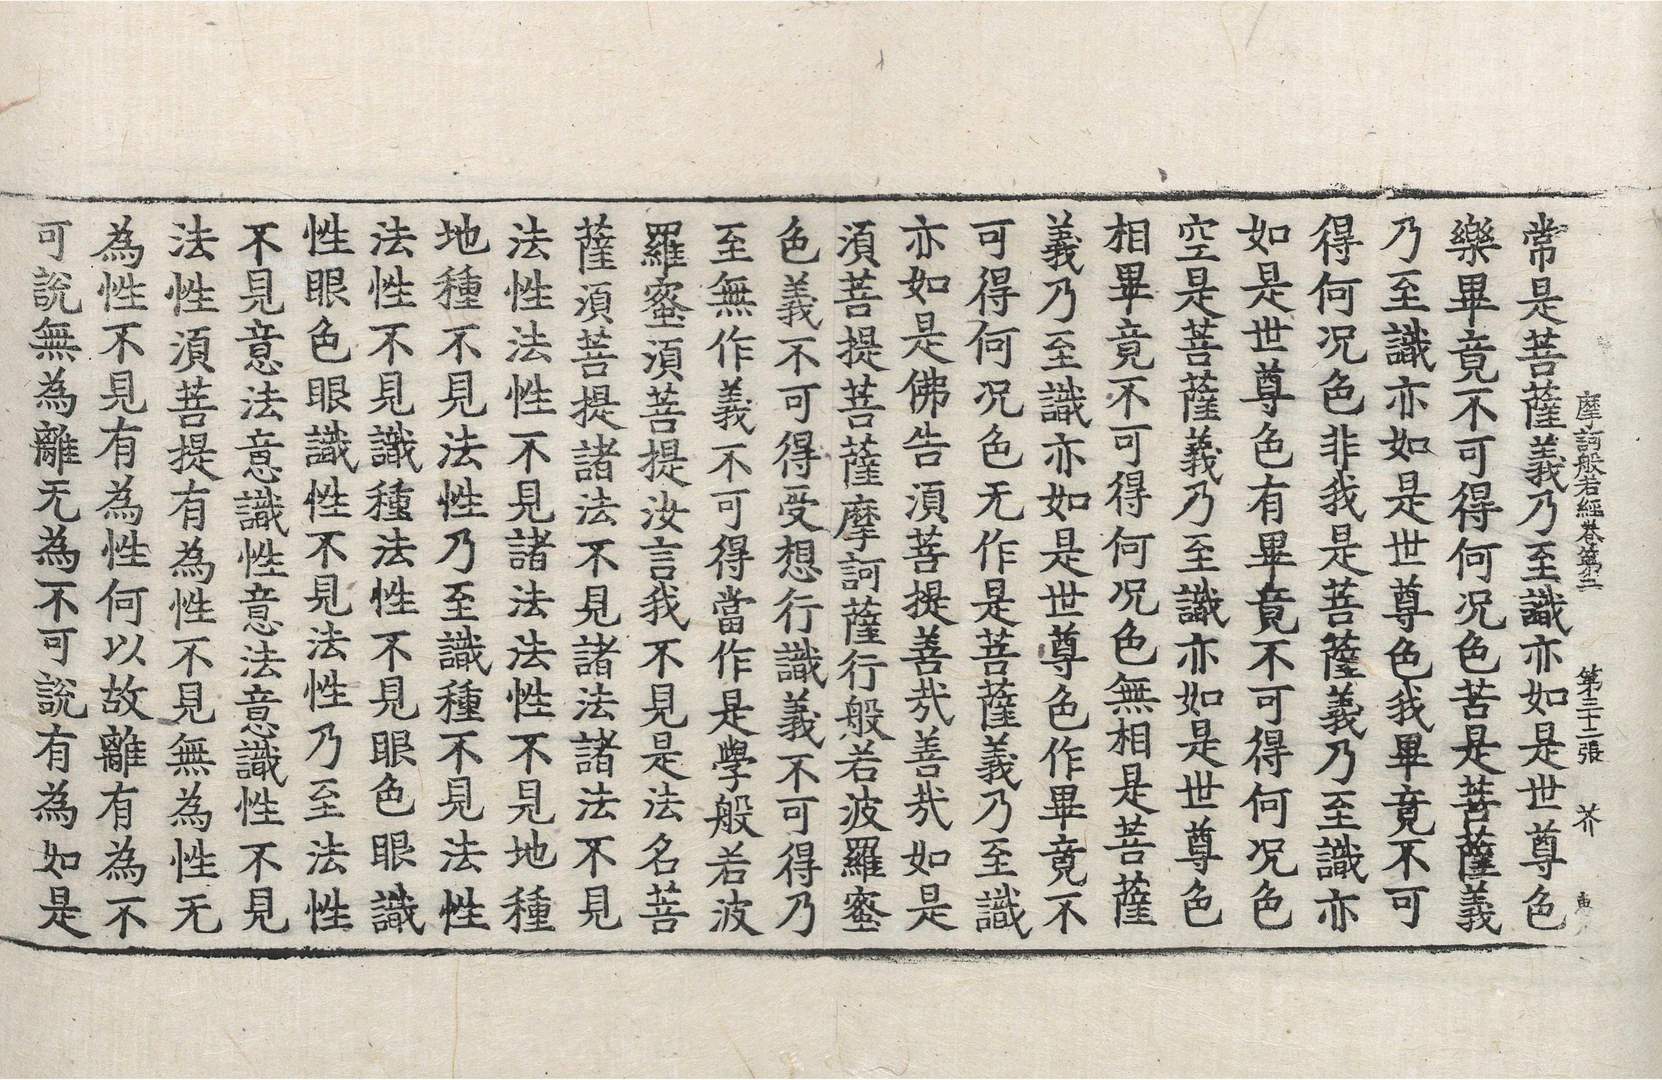 摩訶般若經卷第二　第三十二張　芥
常是菩薩義乃至識亦如是世尊色
樂畢竟不可得何况色苦是菩薩義
乃至識亦如是世尊色我畢竟不可
得何况色非我是菩薩義乃至識亦
如是世尊色有畢竟不可得何况色
空是菩薩義乃至識亦如是世尊色
相畢竟不可得何况色無相是菩薩
義乃至識亦如是世尊色作畢竟不
可得何况色无作是菩薩義乃至識
亦如是佛告湏菩提善㢤善㢤如是
湏菩提菩薩摩訶薩行般若波羅蜜
色義不可得受想行識義不可得乃
至無作義不可得當作是學般若波
羅蜜湏菩提汝言我不見是法名菩
薩湏菩提諸法不見諸法諸法不見
法性法性不見諸法法性不見地種
地種不見法性乃至識種不見法性
法性不見識種法性不見眼色眼識
性眼色眼識性不見法性乃至法性
不見意法意識性意法意識性不見
法性湏菩提有為性不見無為性无
為性不見有為性何以故離有為不
可說無為離无為不可說有為如是